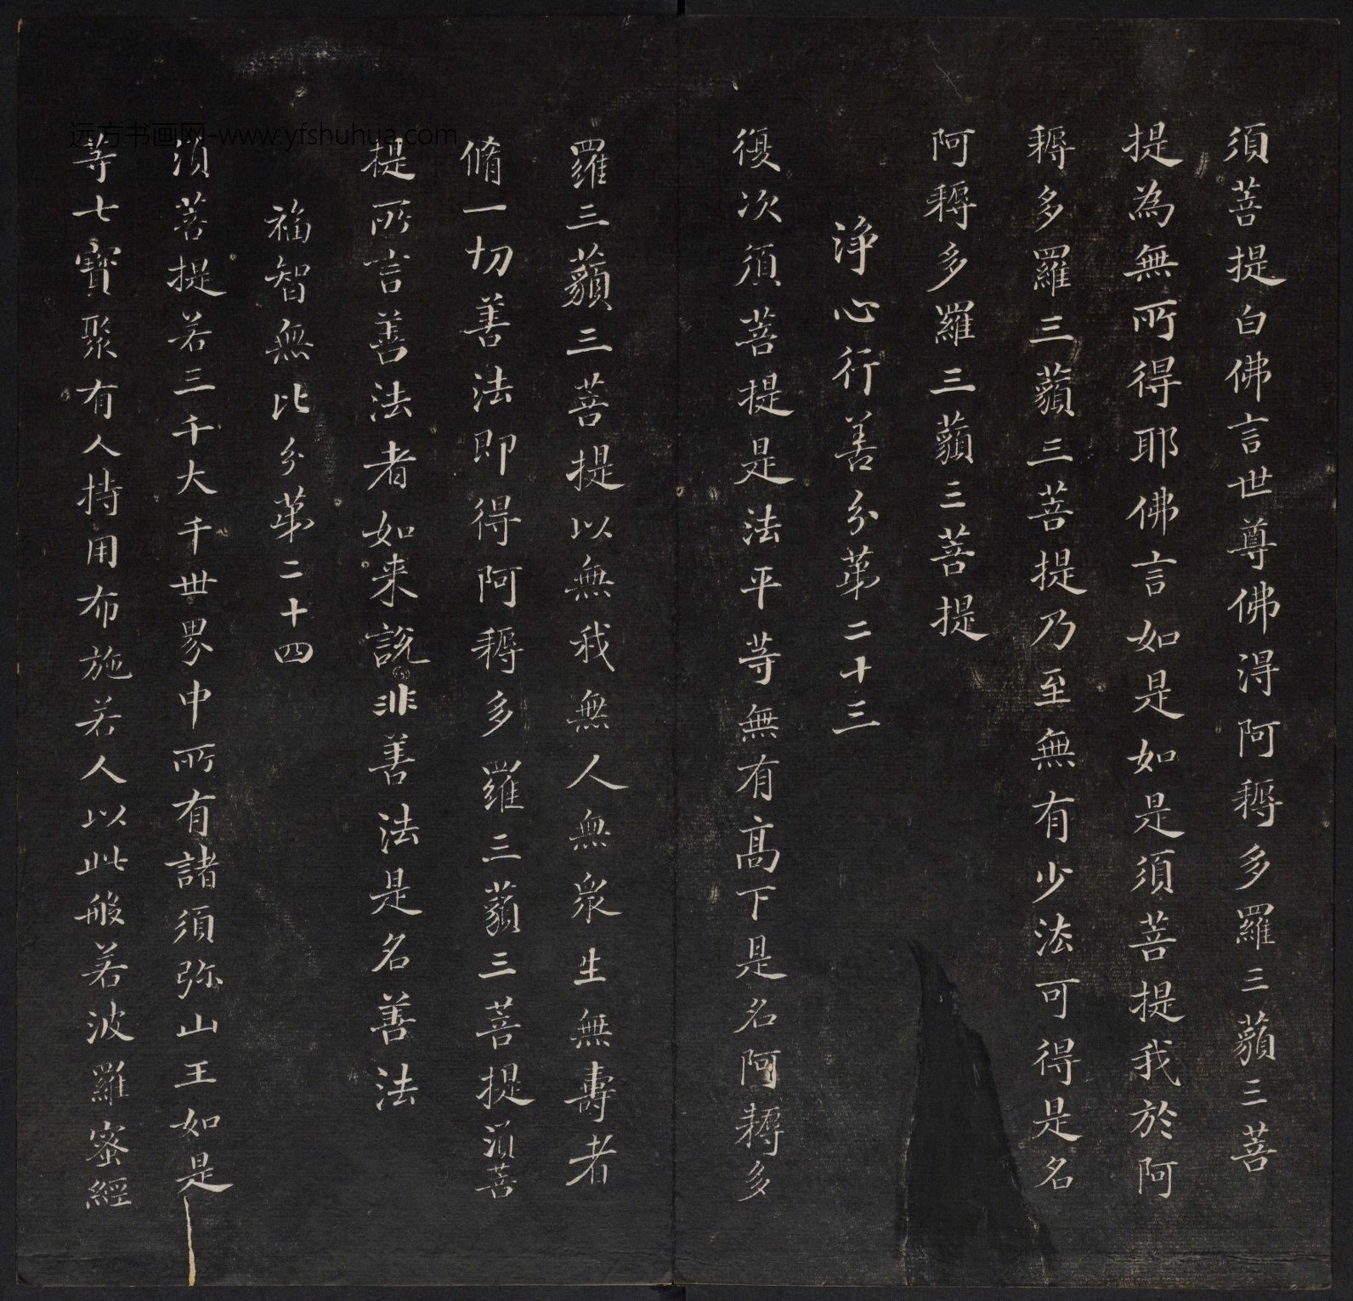 須菩提白佛言世尊佛得阿耨多羅三藐三菩
提為無所得耶佛言如是如是須菩提我於阿
耨多羅三藐三菩提乃至無有少法可得是名
阿耨多羅三藐三菩提
淨心行善分第二十三
復次須菩提是法平等無有高下是名阿耨多
羅三藐三菩提以無我無人無衆生無壽者
脩一切善法即得阿耨多羅三藐三菩提須菩
提所言善法者如来說非善法是名善法
福智無比分第二十四
須菩提若三千大千世界中所有諸須弥山王如是
等七寶聚有人持用布施若人以此般若波羅蜜經
远方书画网-www.yfshuhua.com